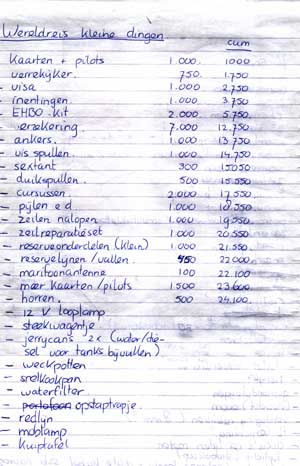 Wereldreis kleine dingen
cum
Kaarten + pilots 1.000. 1000
verrekijker. 750. 1.750
- visa 1.000 2.750
- inentingen. 1.000 3.750
- EHBO kit 2.000 5.750
- verzekering. 7.000 12.750
- ankers. 1.000 13.750
- vis spullen. 1.000 14.750
- sextant 300 15050
- duikspullen. 500 15.550
- cursussen. 2.000 17.550
- pijlen e d 1.000 18.550
- zeilen nalopen. 1.000 19.550
- zeilreparatieset 1.000 20.550
- reserveonderdelen (klein) 1.000 21.550
- reservelijnen / vallen. 450 22000
- marifoonantenne 100 22.100
- meer kaarten / pilots 1.500 23.600
- horren. 500 24.100
- 12 V looplamp
- steekwagentje
- jerrycans 2x (water/die-
sel voor tanks bijvullen)
- weckpotten
- snelkookpan
- waterfilter
- opstaptrapje.
- redlijn
- moblamp
- kuiptafel